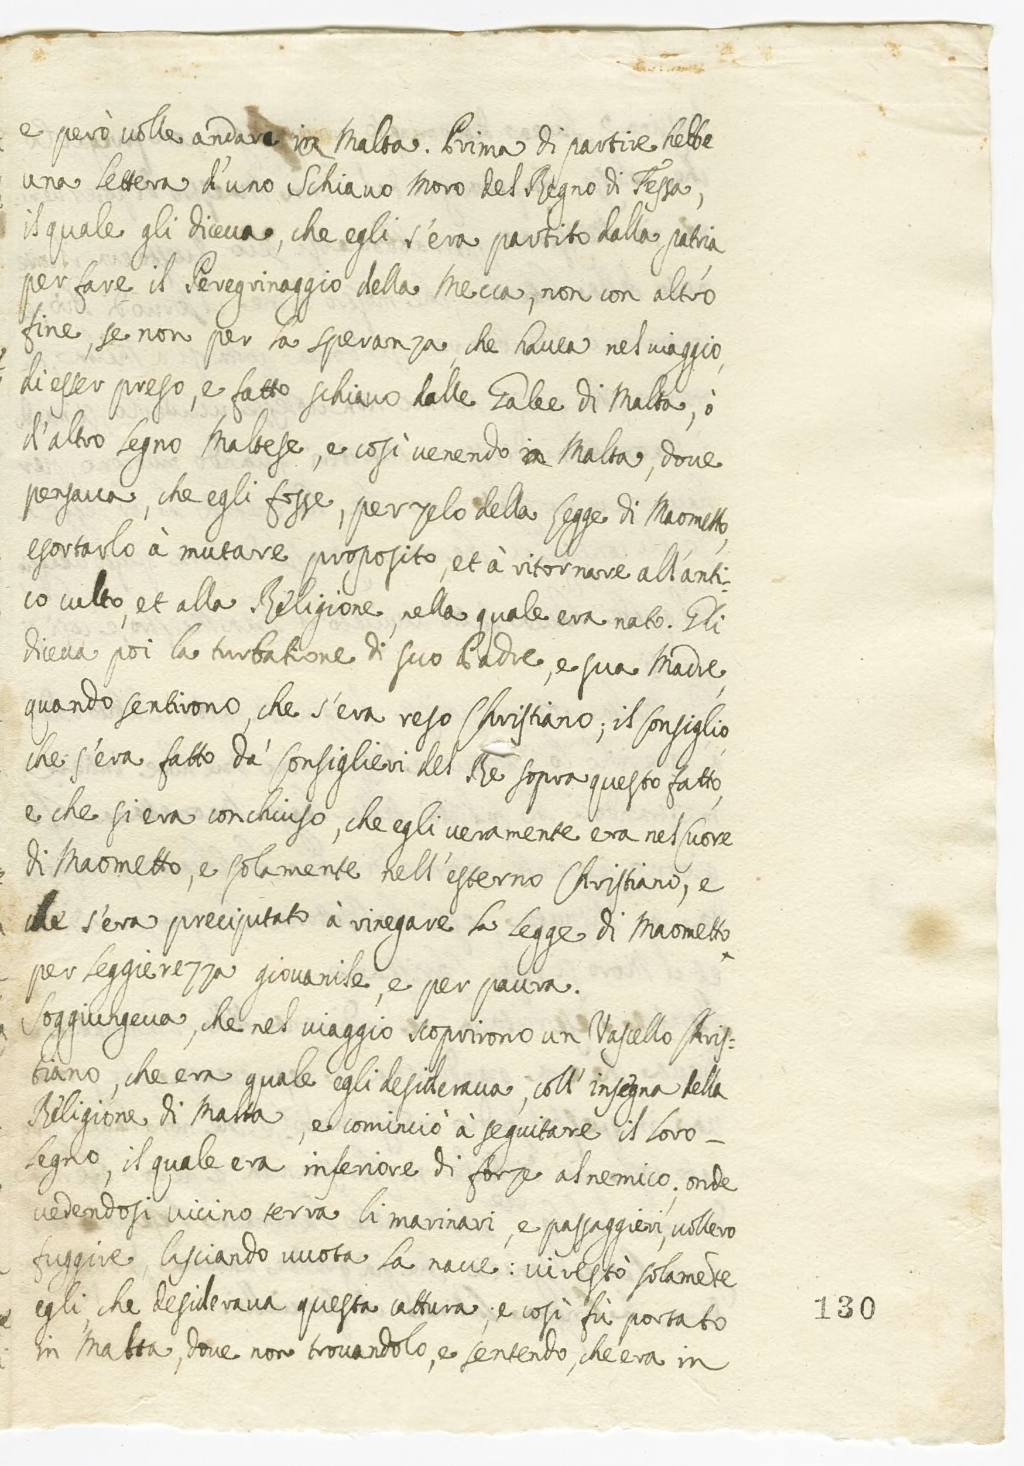 e però volle andare in Malta. Prima di partire hebbe
una lettera d'uno Schiavo Moro del Regno di Fessa,
il quale gli diceua, che egli s'era partito dalla patria
per fare il Peregrinaggio della Mecca, non con altro
fine, se non per la speranza, che hauea nel uiaggio,
di esser preso, e fatto schiauo dalle Galee di Malta, ò
d'altro legno Maltese, e così uenendo in Malta, doue
pensaua, che egli fosse, per zelo della legge di Maometto,
esortarlo à mutare proposito, et à ritornare all'anti=
co culto, et alla Religione, nella quale era nato. Gli
diceua poi la turbatione di suo Padre, e sua Madre,
quando sentirono, che s'era reso Christiano; il Consiglio,
che s'era fatto da' Consiglieri del Rè sopra questo fatto,
e che si era conchiuso, che egli ueramente era nel Cuore
di Maometto, e solamente nell'esterno Christiano, e
che s'era precipitato à rinegare la legge di Maometto
per leggierezza giouanile, e per paura.
Soggiungeua, che nel uiaggio scoprirono un Vascello Chris=
tiano, che era quale egli desideraua, coll' insegna della
Religione di Malta, e cominciò à seguitare il loro –
legno, il quale era inferiore di forze al nemico; onde
uedendosi uicino terra li marinari, e passaggieri, uollero
fuggire, lasciando uuota la naue: ui restò solamẽte
egli, che desideraua questa cattura, e così fù portato
in Malta, doue non trouandolo, e sentendo, che era in
130